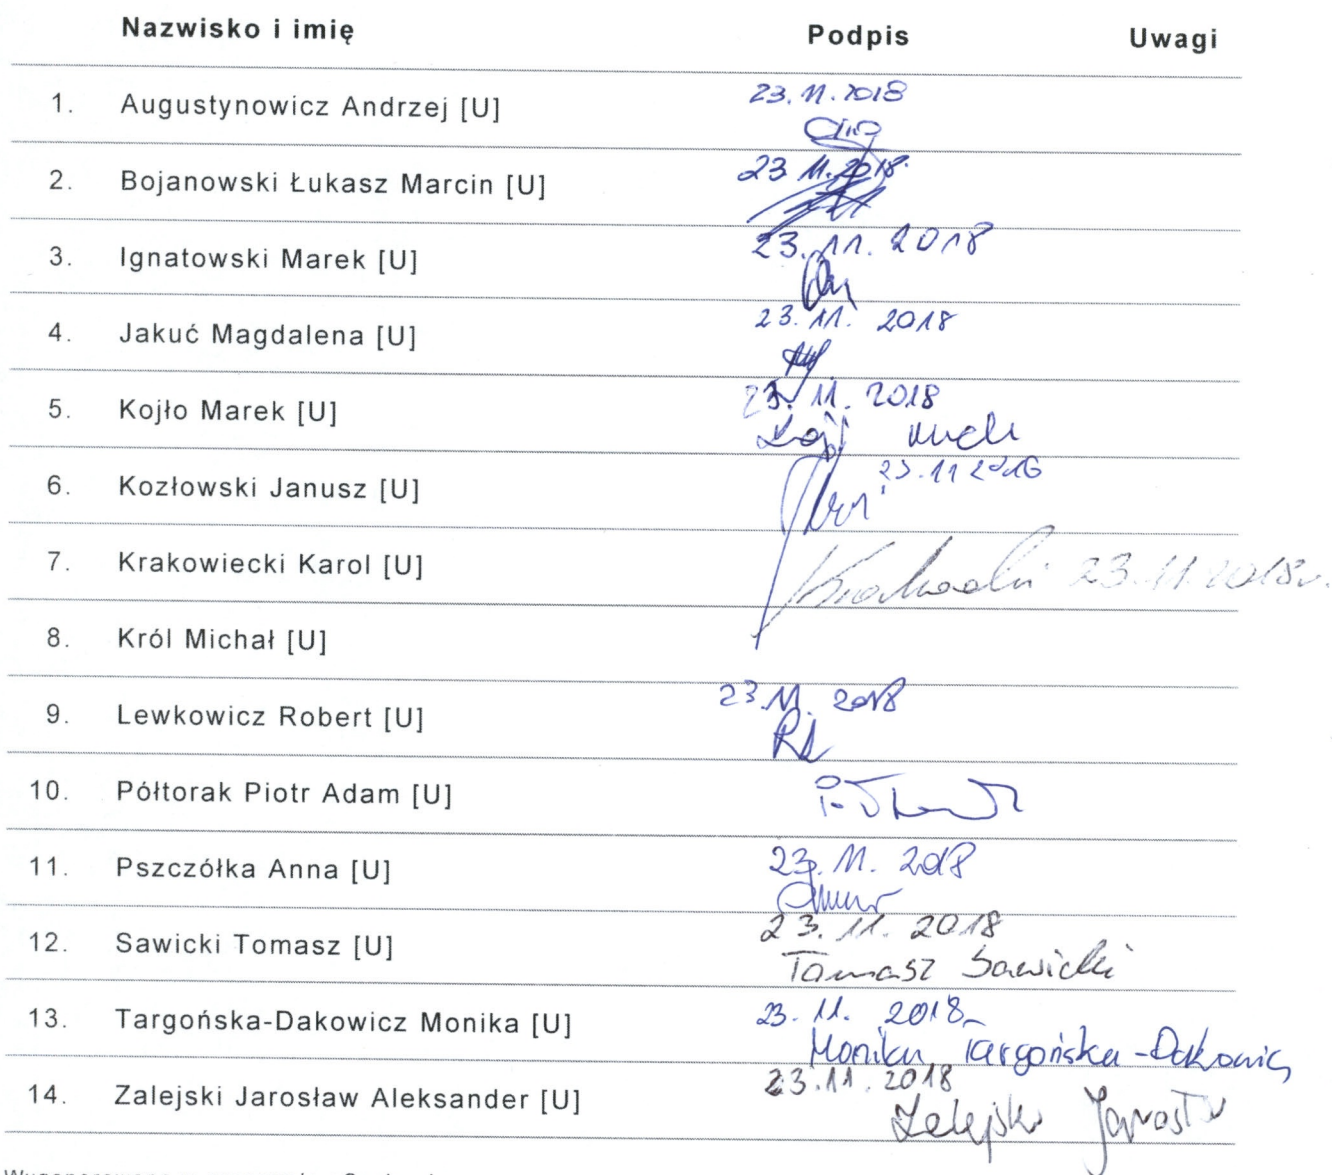 Nazwisko i imię Podpis Uwagi
23.11.2018
1. Augustynowicz Andrzej [U]
23 11.2018.
2. Bojanowski Łukasz Marcin [U]
23.11. 2018
3. Ignatowski Marek [U]
23.11. 2018
4. Jakuć Magdalena [U]
23.11. 2018
5. Kojło Marek [U]
23.11 2018
6. Kozłowski Janusz [U]
7. Krakowiecki Karol [U] 23.11.2018r.
8. Król Michał [U]
23.11. 2018
9. Lewkowicz Robert [U]
10. Półtorak Piotr Adam [U]
23.11. 2018
11. Pszczółka Anna [U]
23.11. 2018
12. Sawicki Tomasz [U] Tomasz Sawicki
13. Targońska-Dakowicz Monika [U] 23.11. 2018
Monika Targońska-Dakowicz
23.11.2018
14. Zalejski Jarosław Aleksander [U] Zalejski Jarosław